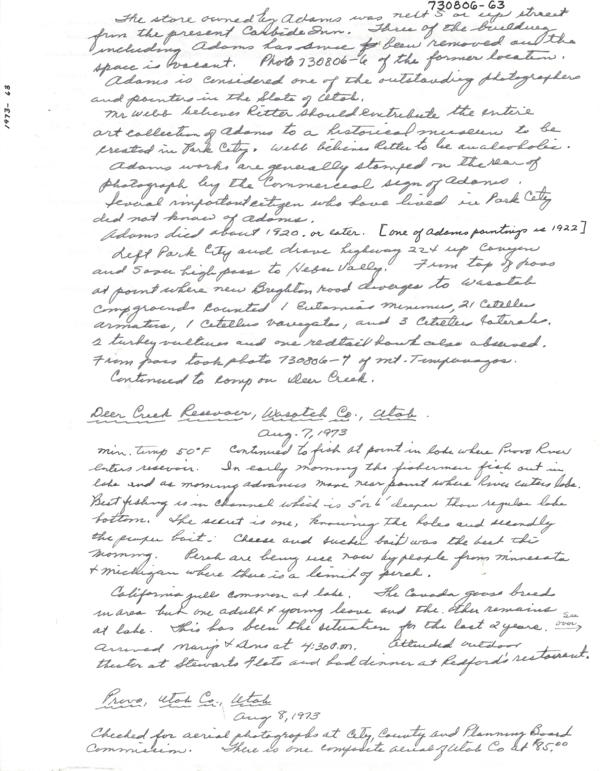 730806-63
1973-68
The store owned by Adams was next 5 or up street
from the present Carbide Inn. Three of the buildings
including Adams has since been removed and the
space is vacant. Photo 730806-6 of the former location.
Adams is considered one of the outstanding photographers
and painters in the State of Utah.
Mr Webb believes Ritter should contribute the entire
art collection of Adams to a historical museum to be
created in Park City. Webb believes Ritter to be an alcoholic.
Adams works are generally stamped on the rear of
photograph by the Commercial sign of Adams.
Several important citizen who have lived in Park City
did not know of Adams.
Adams died about 1920. or later. [One of Adams paintings is 1922]
Left Park City and drove highway 224 up Canyon
and over high pass to Heber Vally. From top of pass
at point where new Brighton road diverges to Wasatch
Campgrounds counted 1 Eutamias minimus, 21 Citellus
armatus, 1 Citellus varegatus, and 3 Citellus lateralis.
2 turkey vultures and one redtail hawk also observed.
From pass took photo 730806-7 of Mt. Timpanogos.
Continued to camp on Deer Creek.
Deer Creek Resevoir, Wasatch Co., Utah.
Aug. 7, 1973
Min. temp 50°F Continued to fish at point in lake where Provo River
enters resevoir. In early morning the fishermen fish out in
lake and as morning advances move near point where River enters lake.
Best fishing is in channel which is 5' or 6' deeper than regular lake
bottom. The secret is one, knowing the holes and secondly
the proper bait. Cheese and sucker bait was the best this
morning. Perch are being use now by people from Minnesota
+ Michigan where there is a limit of perch.
California gull common at lake. The Canada goose breeds
in area but one adult + young leave and the other remains
at lake. This has been the situation for the last 2 years. See over
Arrived Mary's + Ans at 4:30 P.M. Attended outdoor
theater at Stewarts Flats and had dinner at Redford's restaurant.
Provo, Utah Co., Utah
Aug 8, 1973
Checked for aerial photographs at City, County and Planning Board
Commission. There is one composite aerial of Utah Co at $85.00